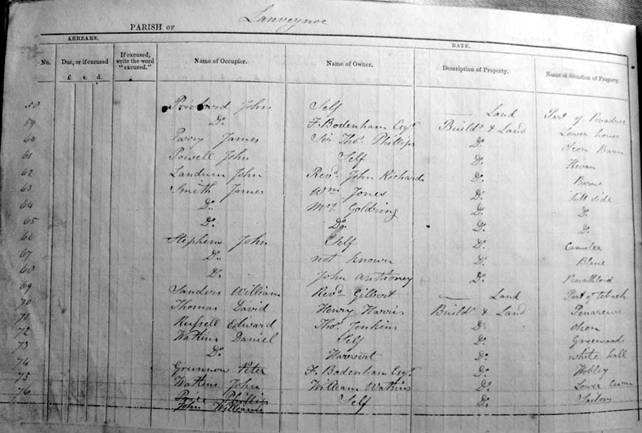 PARISH OF Lanveynoe
ARREARS. RATE.
No. Due, or if excused If excused, write the word "excused." Name of Occupier. Name of Owner. Description of Property. Name or Situation of Property.
£ s. d.
58 Prichard John Self Land Part of Paradise
59 Do. F. Bodenham Esqr. Builds. & Land Lower house
60 Parry James Sir Thos. Phillips Do. Barn
61 Powell John Self Do.
62 Landum John Revd. John Richards Do.
63 Smith James Wm. Jones Do. hill side
64 Do. Mrs. Goldring Do. Do.
65 Do. Do. Do. Do.
66 Stephens John Self Do.
67 Do. not known Do. Blane
68 Do. John Do.
69 Sanders William Revd. Gilbert Land Part of
70 Thomas David Henry Harris Builds. & Land
71 Russell Edward Thos. Jenkins Do. Olcon
72 Watkins Daniel Self Do. Greenwood
73 Do. Do. white hall
74 Peter F. Bodenham Esqr. Do.
75 Watkins John William Watkins Do. Lower
76 Price Self Do.
John Williams